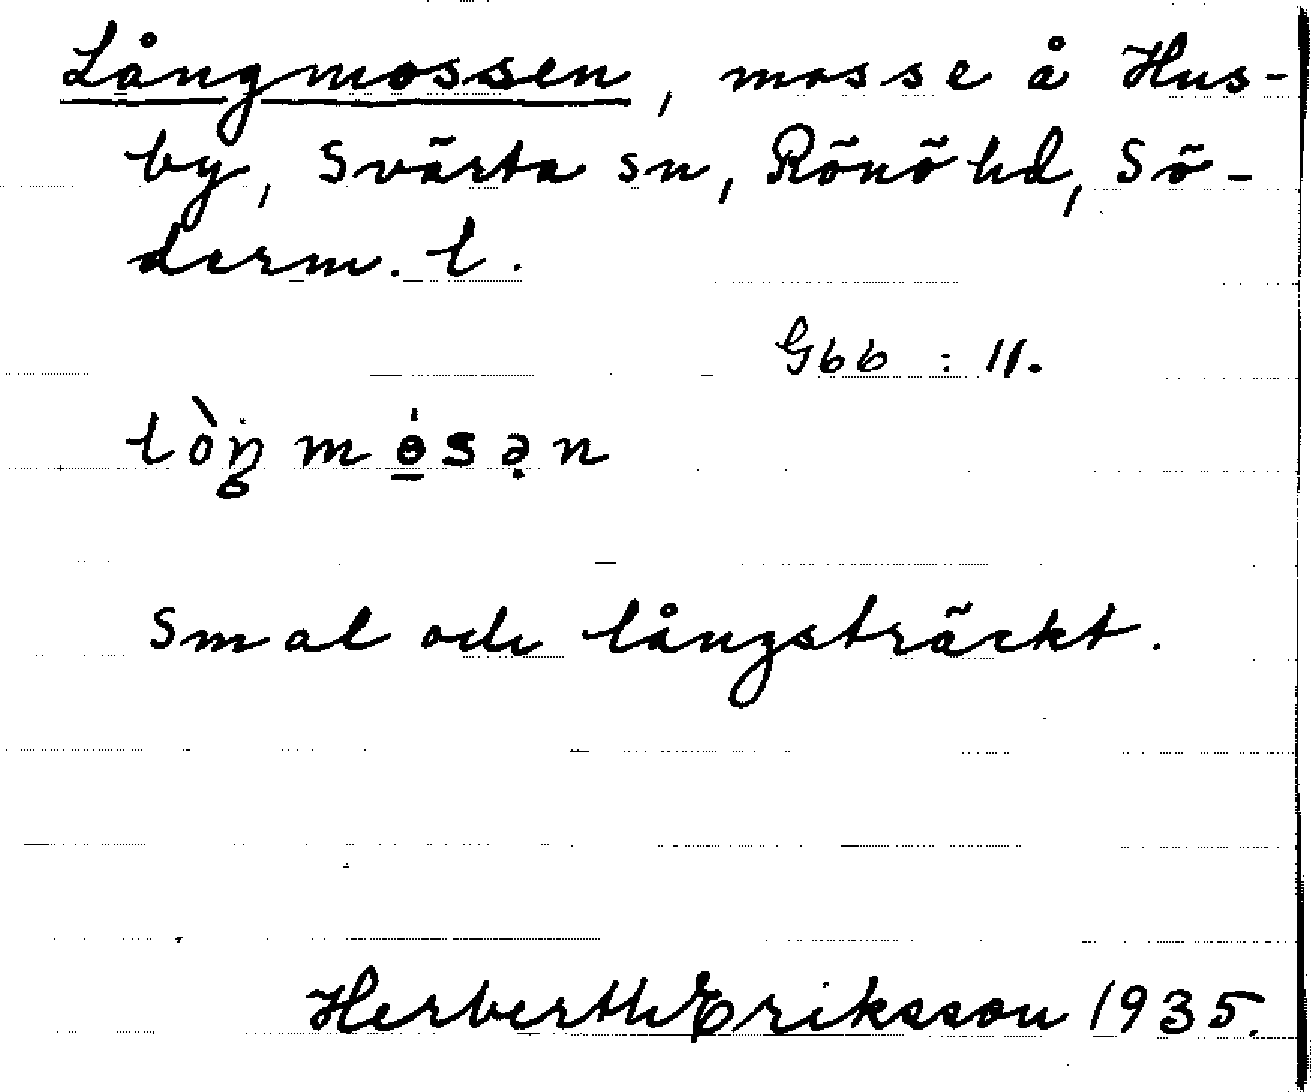 Långmossen, mosse å Hus-
by, Svärta sn, Rönö hd, Sö-
derm. l.
Gbb : 11.
lòŋmɵ́sən
Smal och långsträckt.
Herberth Eriksson 1935.